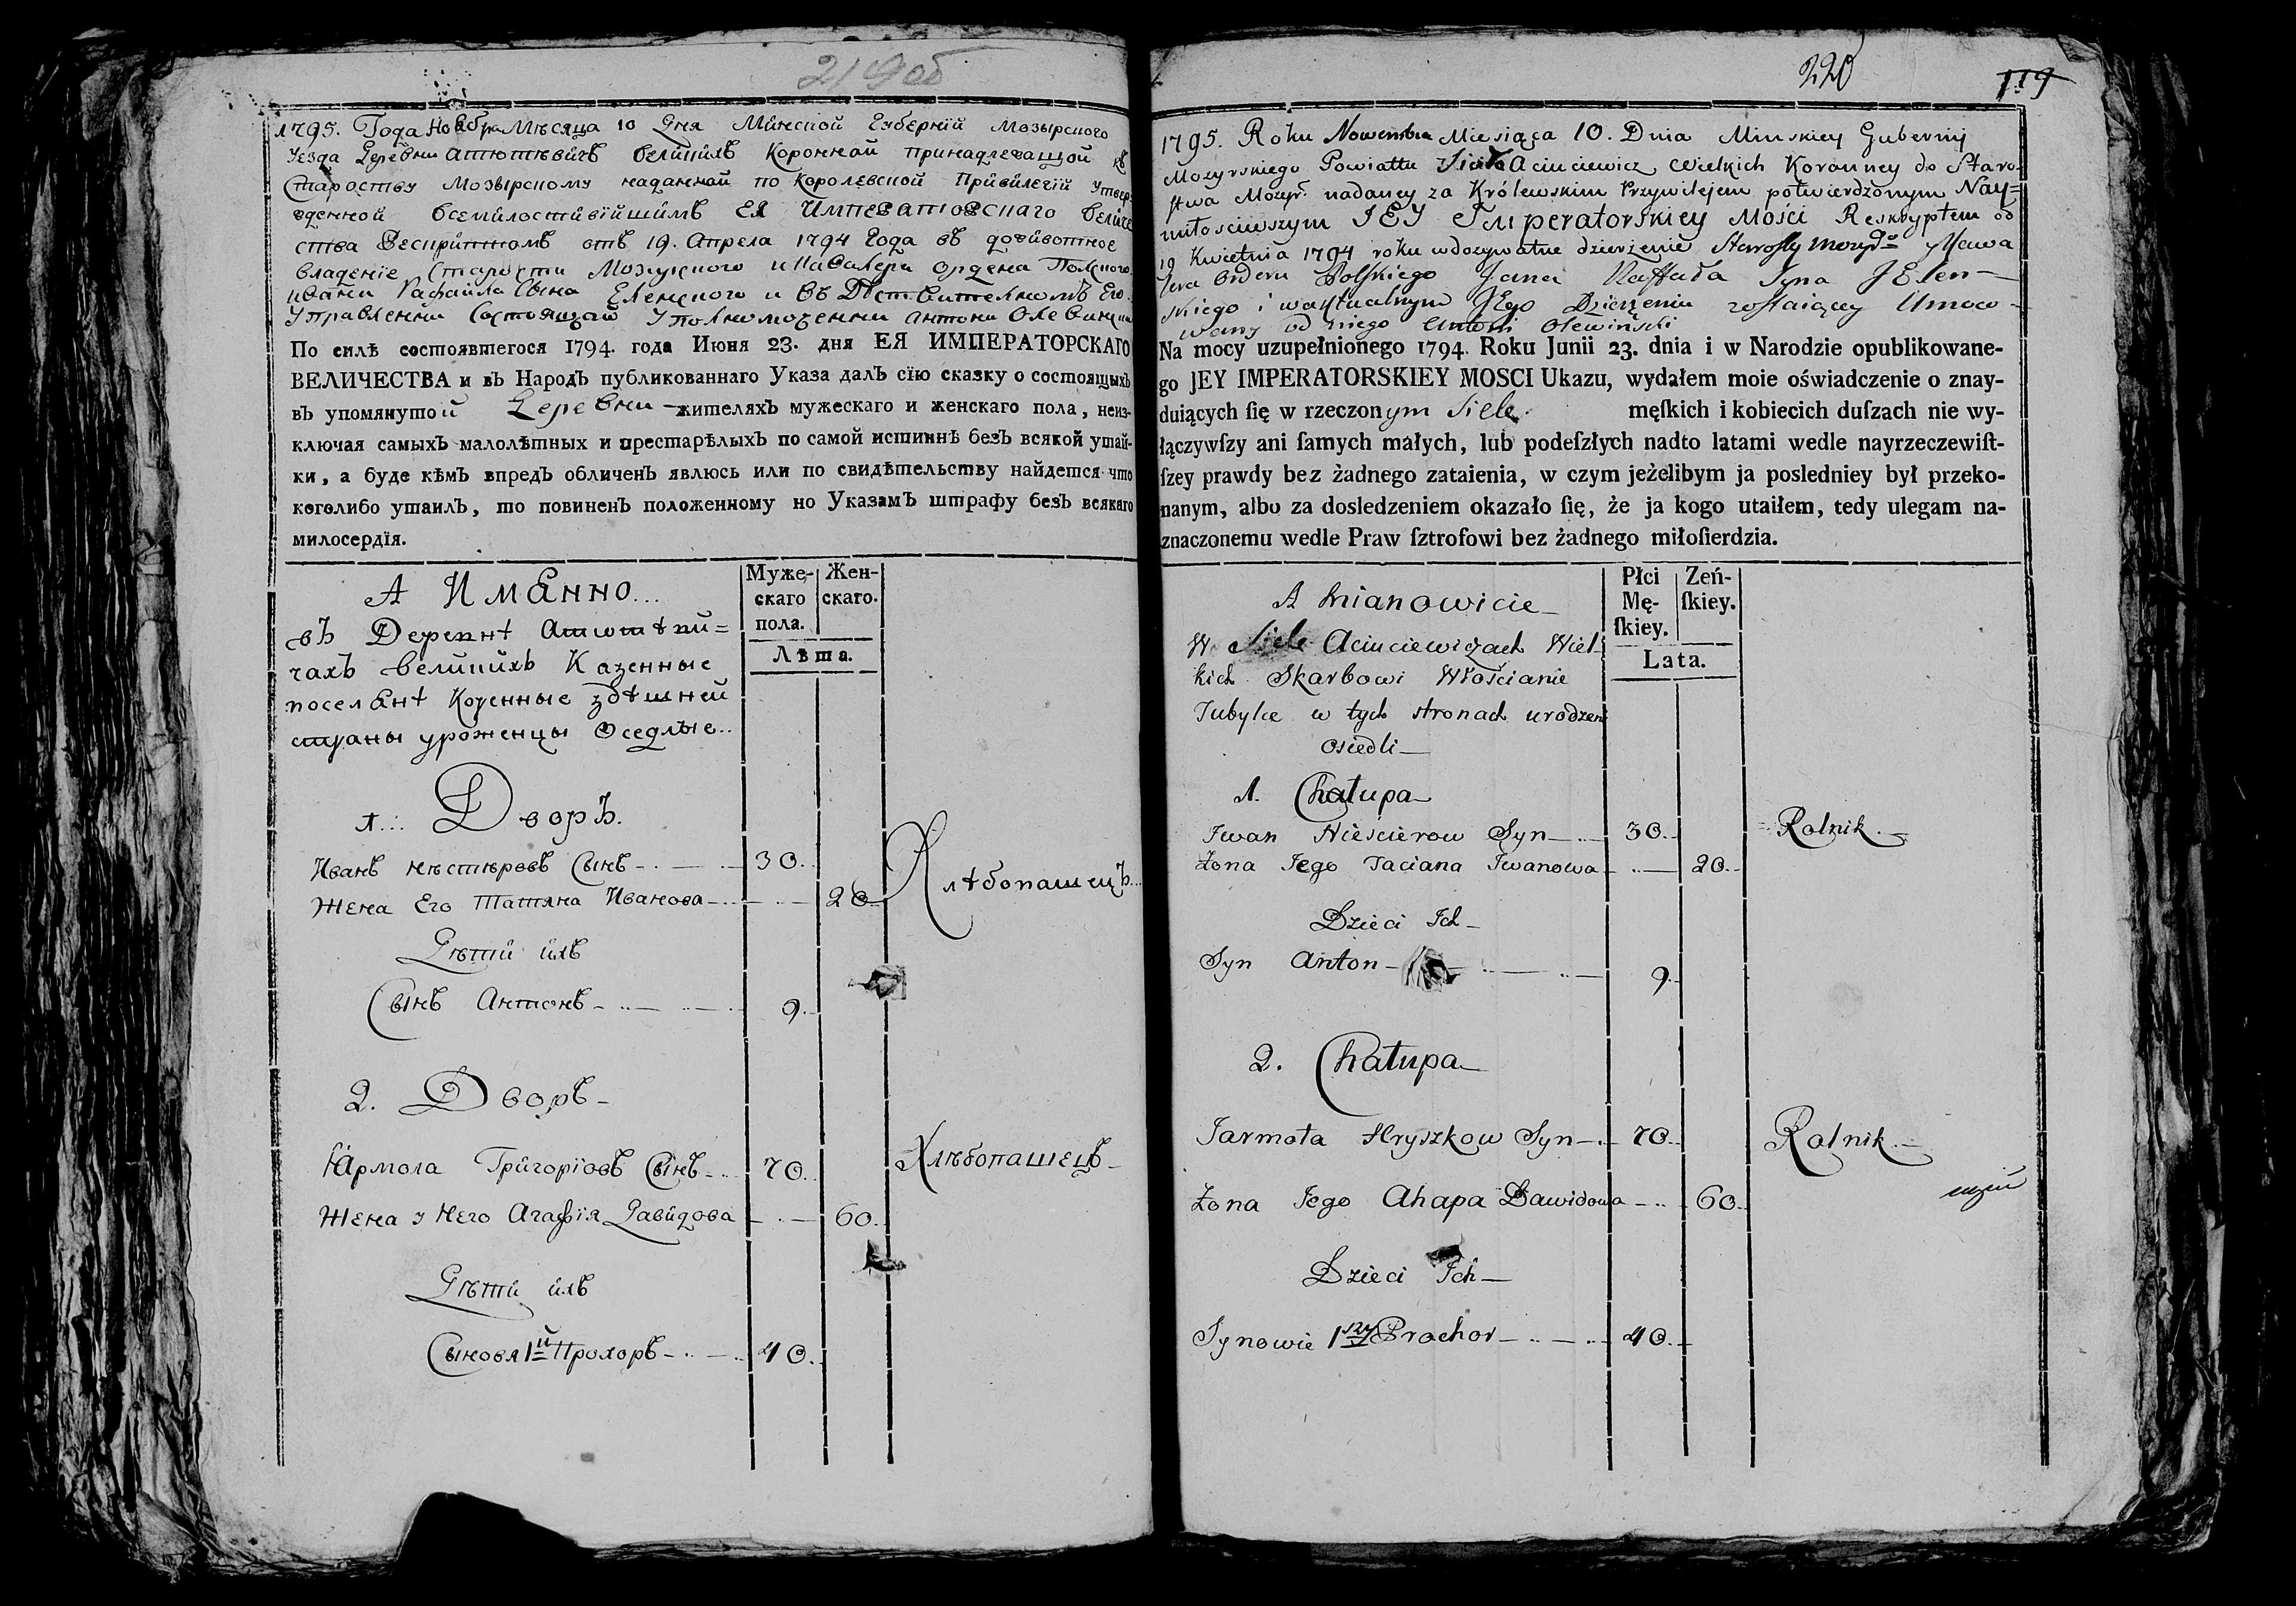 219об
1795. Года Ноября Мѣсяца 10 Дня Минской Губернии Мозырского
Уезда Деревни Атютѣвичъ великихъ Коронной принадлежащой къ
Староству Мозырскому наданной по Королевской Привилегии утвер-
жденной всемилостивѣйшимъ ЕЯ Императорскаго величе
ства Рескриптомъ отъ 19. Апреля 1794 Года въ доживотное
владение Старости Мозырского и Кавалера ордена Полского
Ивана Рафаила Сына Еленского и въ Действителномъ Его
Управлении Состоящай Уполномоченни Антони Олевински
По силѣ состоявшегося 1794. года Июня 23. дня ЕЯ ИМПЕРАТОРСКАГО
ВЕЛИЧЕСТВА и въ Народъ публикованнаго Указа далъ сїю сказку о состоящыхъ
въ упомянутой Деревни жителяхъ мужескаго и женскаго пола, неиз-
ключая самыхъ малолѣтныхъ и престарѣлыхъ по самой истиннѣ безъ всякой утай-
ки, а буде кѣмъ впредь обличенъ явлюсь или по свидѣтельству найдется что
коголибо утаилъ, то повиненъ положенному по Указамъ штрафу безъ всякаго
милосердїя.
А Имянно...
Муже-
скаго
пола.
Жен-
скаго.
Лѣта.
въ Деревнѣ Атютѣви=
чахъ великихъ Казенные
поселянѣ Коренные здѣшней
страны уроженцы Оседлые..
1... Дворъ.
Иванъ Нѣстѣровъ Сынъ 30.
Хлѣбопашецъ...
Жена Его Татяна Иванова 20.
Дѣтй ихъ
Сынъ Антонъ 9.
2. Дворъ
Ярмола Григорїовъ Сынъ 70. Хлѣбопашецъ
Жена у Него Агафїя Давидова 60.
Дѣтй ихъ
Сыновя 1й Прохоръ 40.
220
119
1795. Roku Nowembra Miesiąca 10. Dnia Minskiey Gubernij
Mozyrskiego Powiattu Sioła Aciuciewicz Wielkich Koronney do Staro-
stwa Mozyr: nadaney za Królewskim Przywilejem potwierdzonym Nay=
miłosciwszym JEY Imperatorskiey Mości Reskryptem od
19 Kwietnia 1794 roku w dożywotne dzierżenie Starosty Mozyrgo y Kawa
lera Orderu Polskiego Jana Raffała Syna JElen-
skiego i w aktualnym JEgo Dzierżeniu zostaiącey Umoco-
wany od niego Antoni Olewinski
Na mocy uzupełnionego 1794. Roku Junii 23. dnia i w Narodzie opublikowane-
go JEY IMPERATORSKIEY MOSCI Ukazu, wydałem moie oświadczenie o znay-
duiących ſię w rzeczonym Siele męſkich i kobiecich duſzach nie wy-
łączywſzy ani ſamych małych, lub podeſzłych nadto latami wedle nayrzeczewiſt-
ſzey prawdy bez żadnego zataienia, w czym jeżelibym ja posledniey był przeko-
nanym, albo za dosledzeniem okazało ſię, że ja kogo utaiłem, tedy ulegam na-
znaczonemu wedle Praw ſztrofowi bez żadnego miłoſierdzia.
A mianowicie
Płci
Mę-
ſkiey.
Zeń-
ſkiey.
Lata.
W Siele Aciuciewiczach Wiel
kich Skarbowi Włościanie
Tubylce w tych stronach urodzeni
osiedli
1. Chałupa
Iwan Nieścierow Syn 30. Rolnik.
Żona Jego Taciana Iwanowa 20.
Dzieci Ich
Syn Anton 9.
2. Chałupa
Jarmoła Hryszkow Syn 70. Rolnik.
Żona Jego Ahapa Dawidowa 60.
Dzieci Ich
Synowie 1szy Prochor 40.